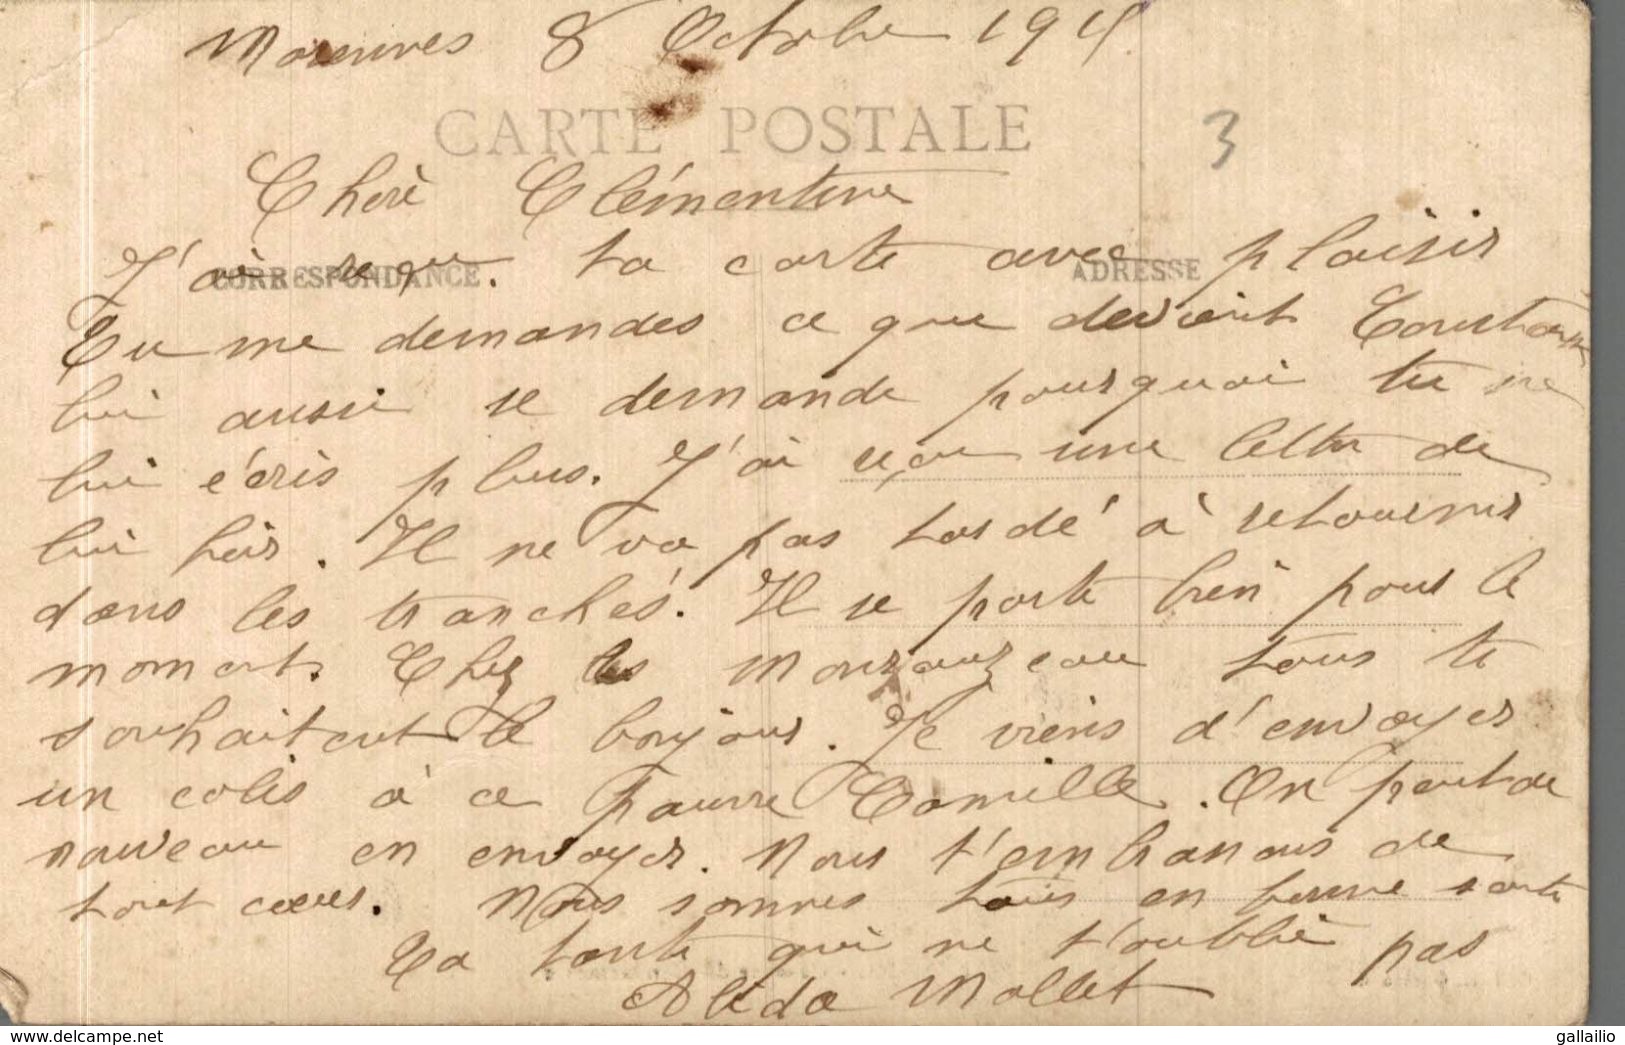 8 Octobre 1915
CARTE POSTALE
3
Cheré Clémentine
CORRESPONDANCE
ADRESSE
J'ai reçu ta carte avec plaisir
Tu me demandes ce que devient
lui aussi se demande pourquoi tu ne
lui écris plus. J'ai reçu une lettre de
lui hèir. Il ne va pas tardé à retournir
dans les tranchés. Il se porte bien pour le
moment. Chez les tous te
souhaitent le bonjour. Je viens d'envoyer
un colis à ce pauvre Camille. On peut de
nouveau en envoyer. Nous t'embrassons de
tout cœur. Nous sommes tous en bonne santé
Ta tante qui ne t'oublié pas
Alida Mollet
gallailio